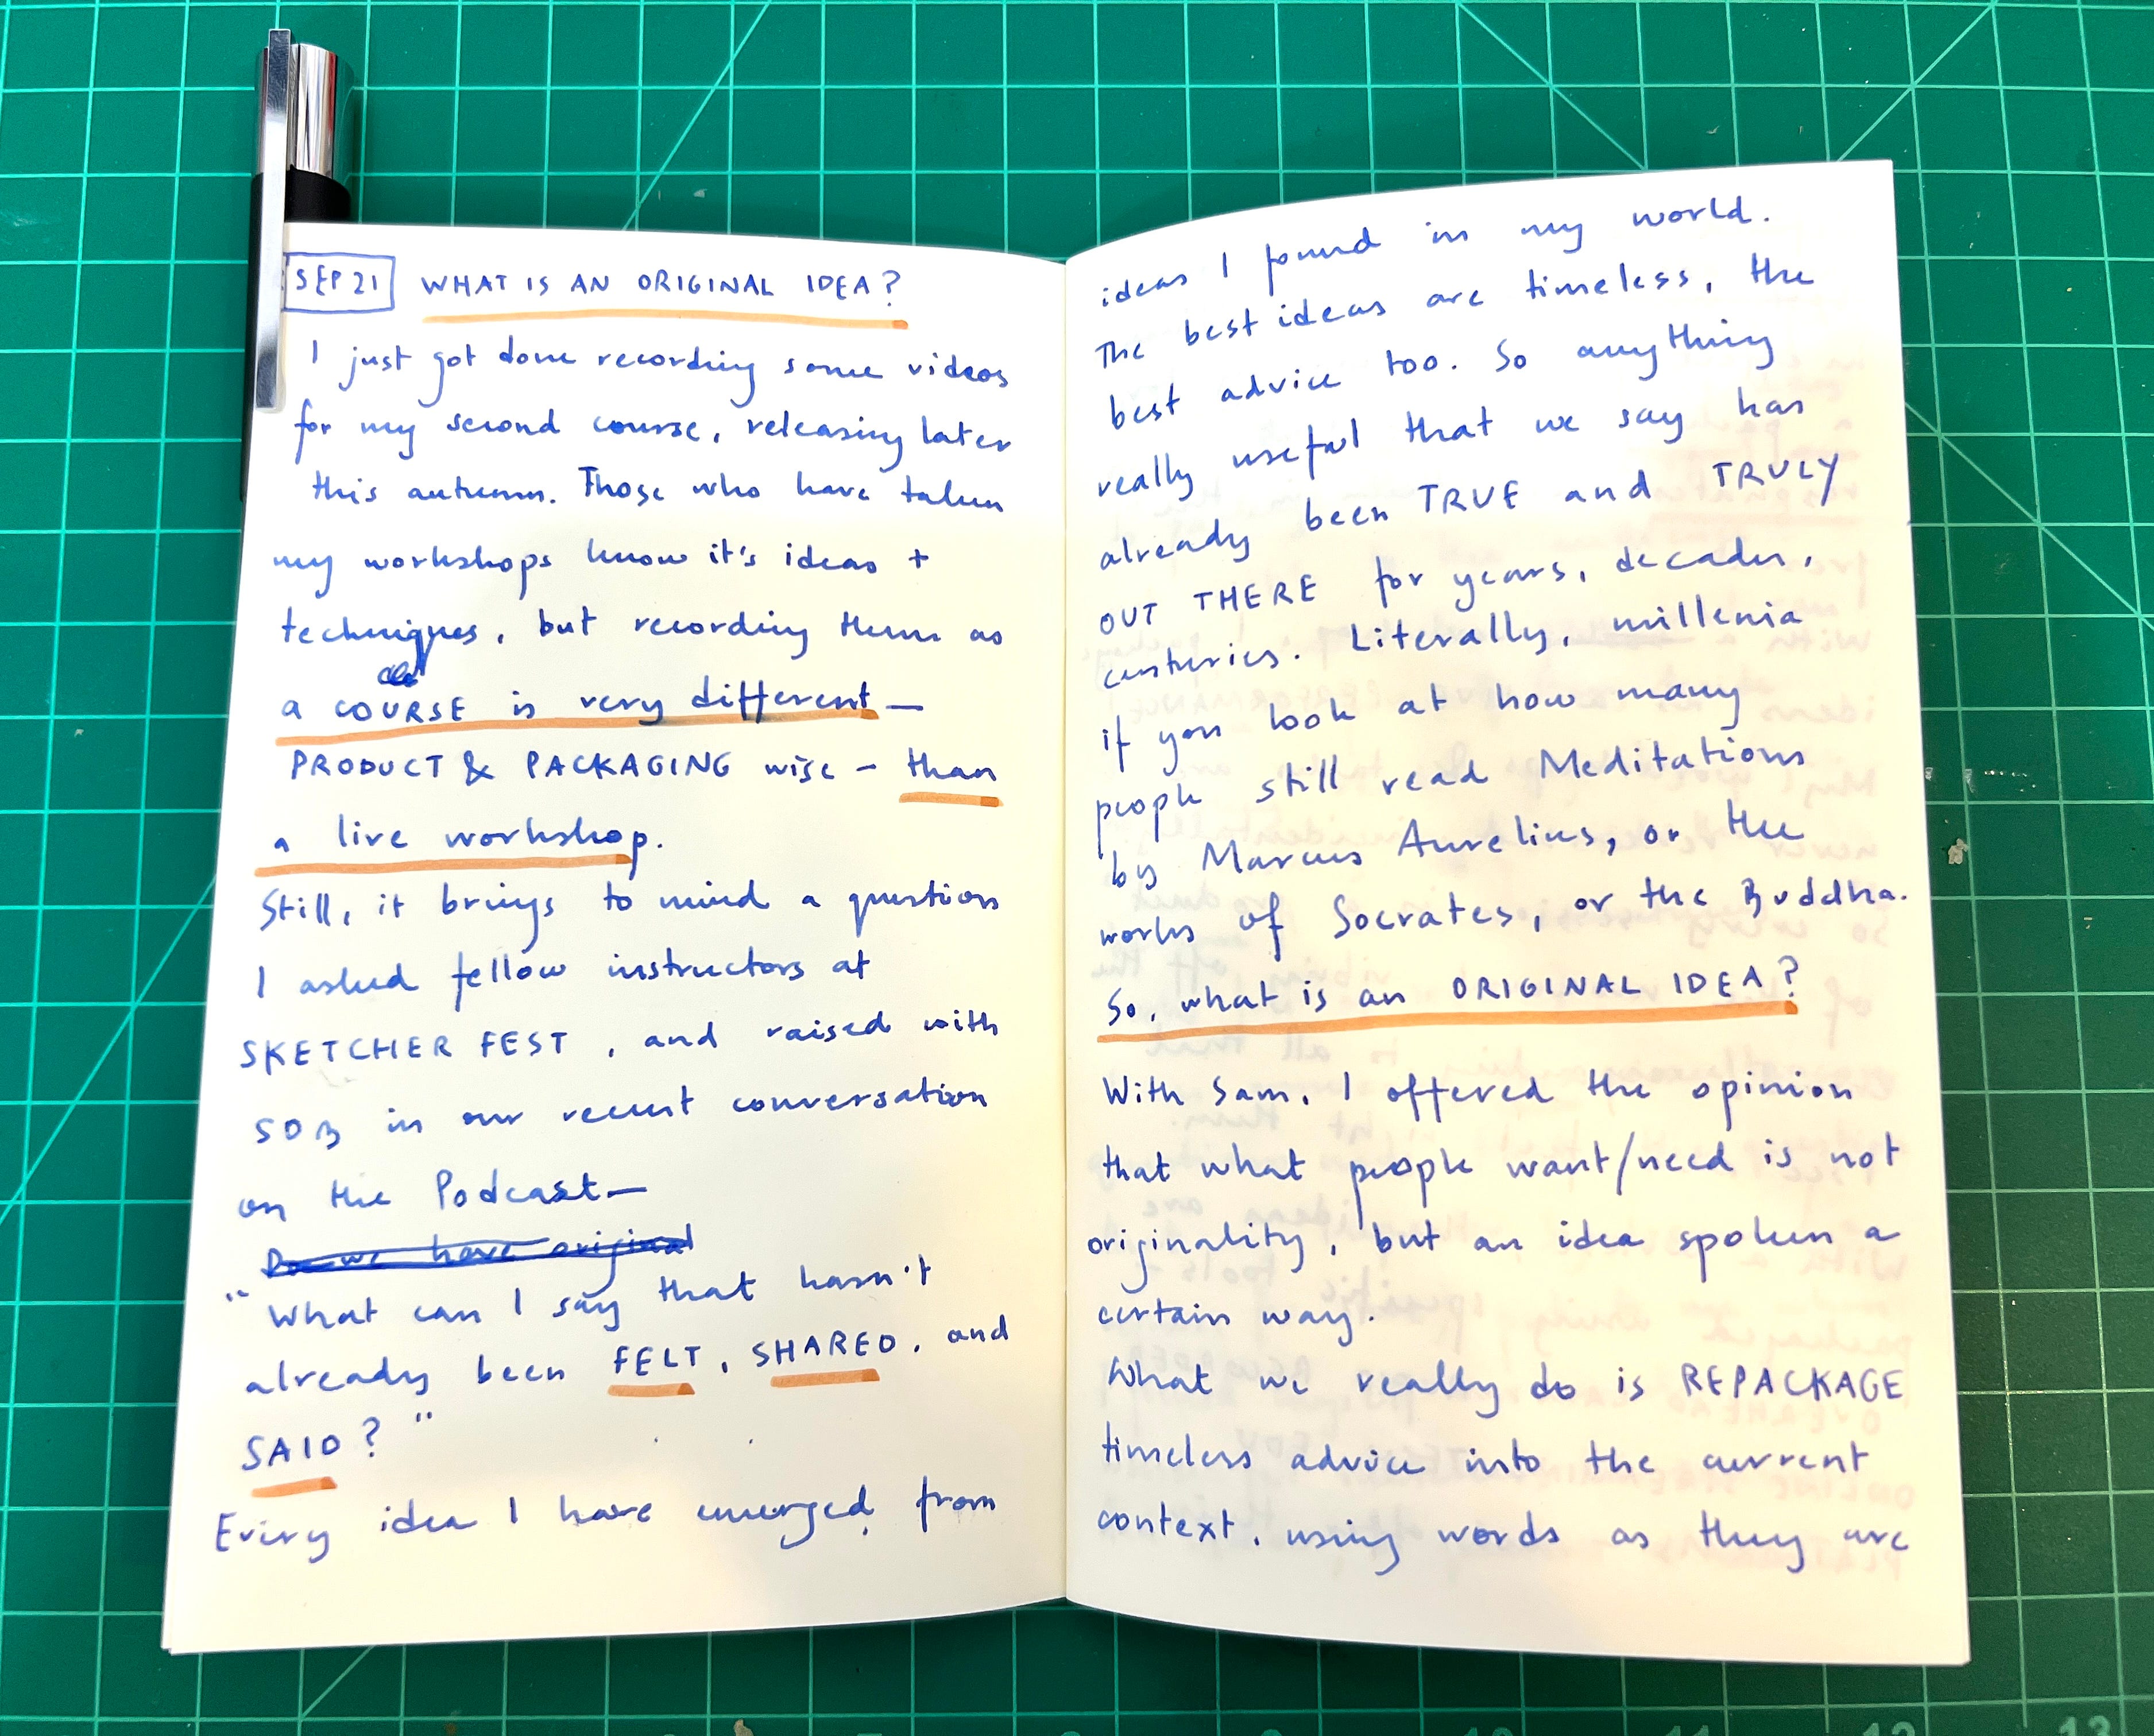 SEP 21 WHAT IS AN ORIGINAL IDEA?
I just got done recording some videos
for my second course, releasing later
this autumn. Those who have taken
my workshops know it's ideas +
techniques, but recording them as
a COURSE is very different —
PRODUCT & PACKAGING wise — than
a live workshop.
Still, it brings to mind a question
I asked fellow instructors at
SKETCHER FEST, and raised with
in our recent conversation
on the Podcast —
Do we have original
"What can I say that hasn't
already been FELT, SHARED, and
SAID?"
Every idea I have emerged from
ideas I found in my world.
The best ideas are timeless, the
best advice too. So anything
really useful that we say has
already been TRUE and TRULY
OUT THERE for years, decades,
centuries. Literally, millenia
if you look at how many
people still read Meditations
by Marcus Aurelius, or the
works of Socrates, or the Buddha.
So, what is an ORIGINAL IDEA?
With Sam, I offered the opinion
that what people want/need is not
originality, but an idea spoken a
certain way.
What we really do is REPACKAGE
timeless advice into the current
context, using words as they are
10
11
12
13